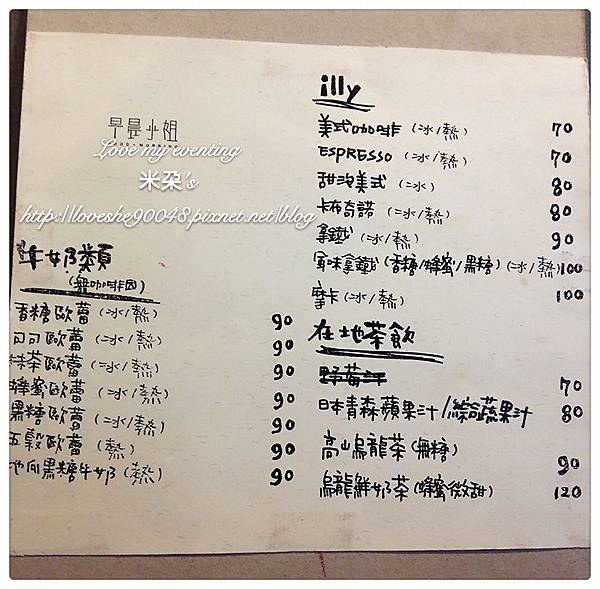 早晨小姐
GOOD MORNING
Love my eventing
米朵's
http://iloveshe90048.pixnet.net/blog
牛奶類
(無咖啡因)
香糖歐蕾 (冰/熱) 90
可可歐蕾 (冰/熱) 90
抹茶歐蕾 (冰/熱) 90
蜂蜜歐蕾 (冰/熱) 90
黑糖歐蕾 (冰/熱) 90
五穀歐蕾 (熱) 90
黑糖牛奶 (熱) 90
illy
美式咖啡 (冰/熱) 70
ESPRESSO (冰/熱) 70
甜沒美式 (冰) 80
卡布奇諾 (冰/熱) 80
拿鐵 (冰/熱) 90
風味拿鐵 (香糖/蜂蜜/黑糖) (冰/熱) 100
摩卡 (冰/熱) 100
在地茶飲
野莓汁 70
日本青森蘋果汁/綜合蔬果汁 80
高山烏龍茶 (無糖) 90
烏龍鮮奶茶 (蜂蜜微甜) 120